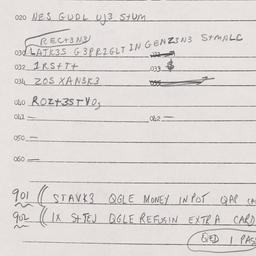 020 NES GUDL UJ3 STUM
RECT3N3
030 LATK3S G3PRZGLT IN GENZ3NS STMALG
032 1RSTTT 033 $
034 ZOS XANSK3 035
040 ROZT3STVO,
041 — 042 —
050 —
060 —
901 (( STAVK3 QGLE MONEY IN POT QAP
902 (( IX STTKJ QGLE REFUSIN EXTRA CARD
QED 1 PAS